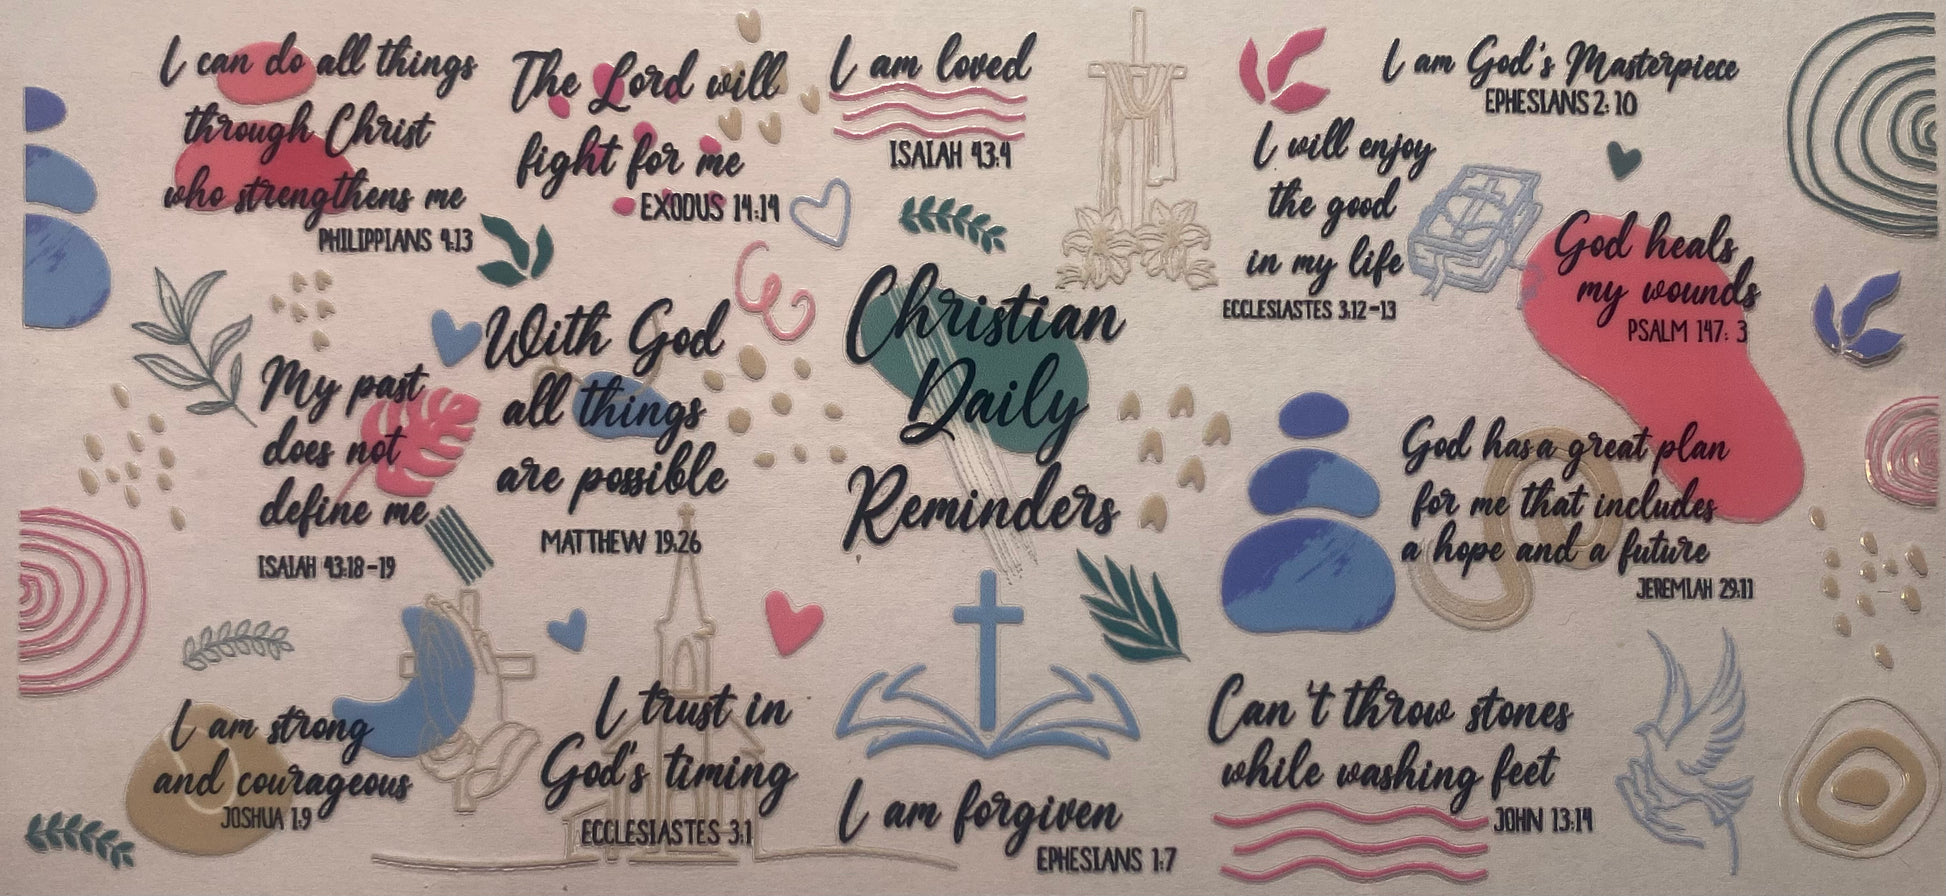 I can do all things
through Christ
who strengthens me
PHILIPPIANS 4:13
The Lord will
fight for me
EXODUS 14:14
I am loved
ISAIAH 43:4
I am God's Masterpiece
EPHESIANS 2: 10
I will enjoy
the good
in my life
ECCLESIASTES 3:12-13
God heals
my wounds
PSALM 147: 3
My past
does not
define me
ISAIAH 43:18-19
With God
all things
are possible
MATTHEW 19:26
Christian
Daily
Reminders
God has a great plan
for me that includes
a hope and a future
JEREMIAH 29:11
I am strong
and courageous
JOSHUA 1:9
I trust in
God's timing
ECCLESIASTES 3:1
I am forgiven
EPHESIANS 1:7
Can't throw stones
while washing feet
JOHN 13:14